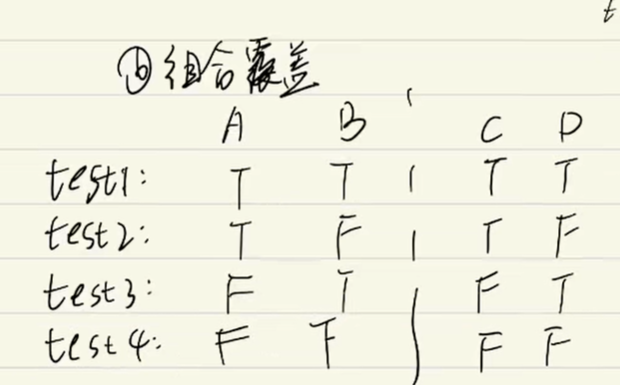 t
⑥组合覆盖
A B C D
test1: T T | T T
test2: T F | T F
test3: F T | F T
test4: F F | F F